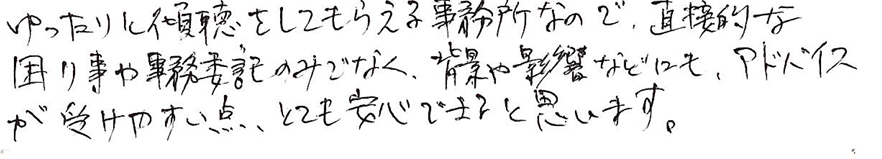 ゆったりと傾聴をしてもらえる事務所なので、直接的な
困り事や事務委託のみでなく、背景や影響などにも、アドバイス
が受けやすい点、とても安心できると思います。